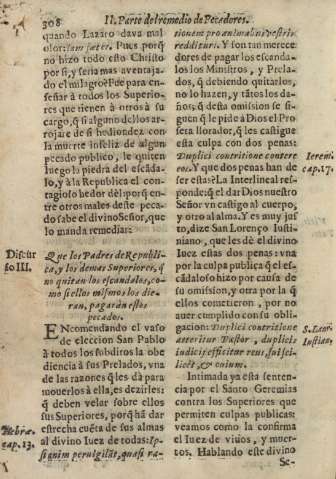 308 II. Parte del remedio de Pecadores.
quando Lazaro dava mal
olor: iam fœtet. Pues porq̃
no hizo todo esto Christo
por si, y seria mas aventaja-
do el milagro? Fue para en-
señar à todos los Superio-
res que tienen à otros à su
cargo, q̃ si alguno dellos ar-
rojare de si hediondez con
la muerte infeliz de algun
pecado publico, le quiten
luego la piedra del escãda-
lo, y à la Republica el con-
tagioso hedor del; porq̃ en-
tre otros males deste peca-
do sabe el divino Señor, que
lo manda remediar:
Discur
so III.
Que los Padres de Republi-
ca, y los demas Superiores, q̃
no quitan los escandalos, co-
mo si ellos mismos los die-
ran, pagaràn estos
pecados.
ENcomendando el vaso
de eleccion San Pablo
à todos los subditos la obe
diencia à sus Prelados, vna
de las razones q̃ les dà para
mouerlos à ella, es dezirles:
q̃ deben velar sobre ellos
sus Superiores, porq̃ hã dar
estrecha cuẽta de sus almas
al divino Iuez de todas: Ip-
si enim pervigilãt, quasi ra-
Hebræ.
cap. 13.
tionem pro animabus vestris
reddituri. Y son tan merece-
dores de pagar los escanda-
los los Ministros, y Prela-
dos, q̃ debiendo quitarlos,
no lo hazen, y tãtos los da-
ños; q̃ desta omision se si-
guen q̃ le pide à Dios el Pro
feta llorador, q̃ les castigue
esta culpa con dos penas:
Duplici contritione contere
eos. Y que dos penas han de
ser estas? La Interlineal res-
ponde: q̃ el dar Dios nuestro
Señor vn castigo al cuerpo,
y otro al alma. Y es muy jus
to, dize San Lorenço Iusti-
niano, que les dè el divino
Iuez estas dos penas: vna
por la culpa publica q̃ el es-
cãdaloso hizo por causa de
su omision, y otra por la q̃
ellos cometieron, por no
auer cumplido con su obli-
gacion: Duplici contritione
atteritur Pastor, duplicis
iudicij efficitur reus, sui sci-
licet, & ouium.
Ierem.
cap. 17.
S. Laur.
Iustian.
Intimada ya esta senten-
cia por el Santo Geremias
contra los Superiores que
permiten culpas publicas:
veamos como la confirma
el Iuez de viuos, y muer-
tos. Hablando este divino
Se-